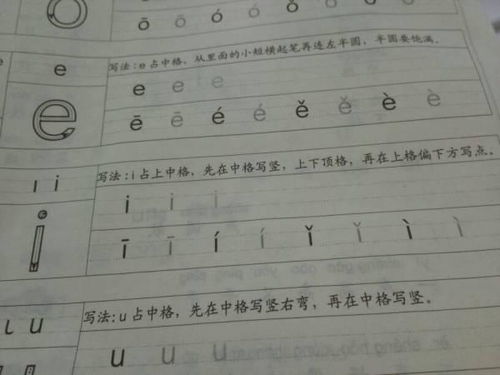 ō ō ó ó ǒ ǒ ò
e
写法:e占中格,从里面的小短横起笔再连左半圆,半圆要饱满。
e e e
e
ē ē é é ě ě è è
ı i
写法:i占上中格,先在中格写竖,上下顶格,再在上格偏下方写点。
i i i
i
ī ī í í ǐ ǐ ì ì
ɩ u
写法:u占中格,先在中格写竖右弯,再在中格写竖。
u u u